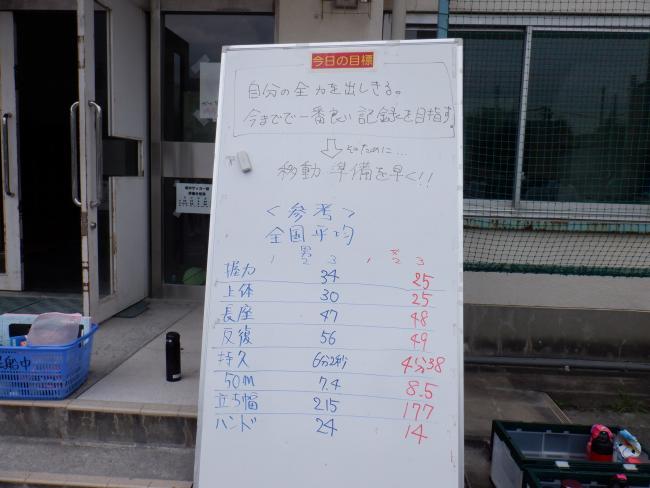 今日の目標
自分の全力を出しきる。
今までで一番良い記録を目指す。
そのために…
移動 準備を早く!!
<参考>
全国平均
1 男2 3 1 女2 3
握力 34 25
上体 30 25
長座 47 48
反復 56 49
持久 6分2秒 4分38
50m 7.4 8.5
立ち幅 215 177
ハンド 24 14